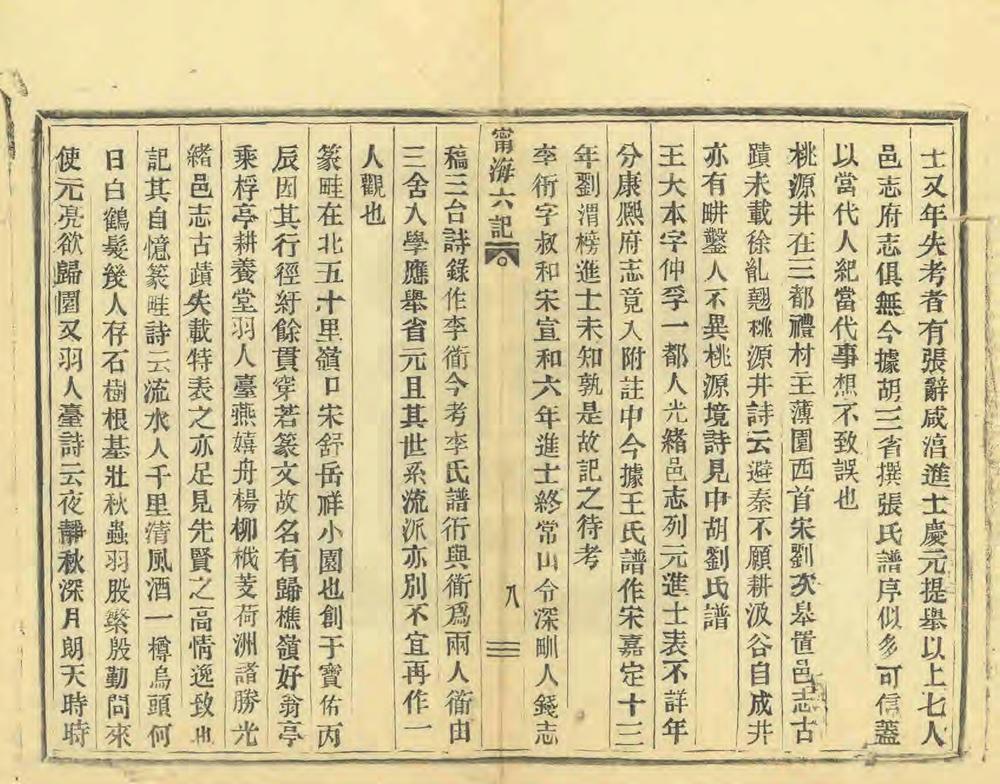 士又年失考者有張辭咸淳進士慶元提舉以上七人
邑志府志俱無今據胡三省撰張氏譜序似多可信蓋
以當代人紀當代事想不致誤也
桃源井在三都禮村主薄園西首宋劉次皋置邑志古
蹟未載徐亂翹桃源井詩云避秦不願耕汲谷自成井
亦有畊鑿人不異桃源境詩見中胡劉氏譜
王大本字仲孚一都人光緒邑志列元進士表不詳年
分康熙府志竟入附註中今據王氏譜作宋嘉定十三
年劉渭榜進士未知孰是故記之待考
李術字叔和宋宣和六年進士終常山令深甽人錢志
甯海六記
八
稿三台詩錄作李衜今考李氏譜術與衜爲兩人衜由
三舍入學應舉省元且其世系流派亦別不宜再作一
人觀也
篆畦在北五十里嶺口宋舒岳祥小園也創于寶佑丙
辰因其行徑紆餘貫穿若篆文故名有歸樵嶺好翁亭
乘桴亭耕養堂羽人臺燕嬉舟楊柳栈芰荷洲諸勝光
緒邑志古蹟失載特表之亦足見先賢之高情逸致也
記其自憶篆畦詩云流水人千里清風酒一樽烏頭何
日白鶴髮幾人存石樹根基壯秋蟲羽股繁殷勤問來
使元亮欲歸園又羽人臺詩云夜靜秋深月朗天時時